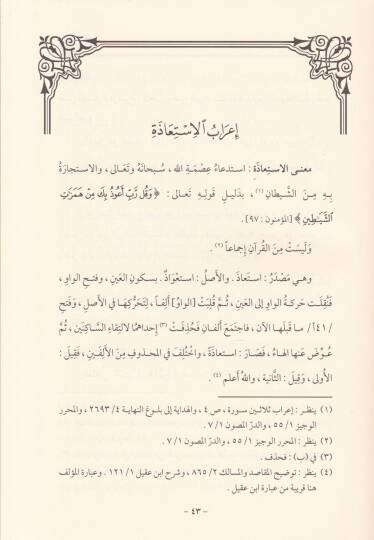 إِعْرَابُ ٱلِاسْتِعَاذَةِ
معنى الاستعاذةِ : استدعاءُ عِصْمَةِ الله ، سُبحانَهُ وتَعَالى ، والاستجارةُ
بِهِ مِنَ الشَّيطانِ (١) ، بدَليلِ قَولِهِ تعالى : ﴿ وَقُل رَّبِّ أَعُوذُ بِكَ مِنْ هَمَزَٰتِ
ٱلشَّيَـٰطِينِ ﴾ [المؤمنون : ٩٧] .
وَلَيسَتْ مِنَ القُرآنِ إجماعاً (٢) .
وهـي مَصْدَرُ : استَعَاذَ . والأصلُ : استعْوَاذٌ . بسكونِ العَينِ ، وفتحِ الواوِ ،
فَنُقِلَت حَركةُ الواوِ إلى العَينِ ، ثُمَّ قُلِبَتْ [الواوُ] ألِفاً ، لِتَحَرُّكِهَا في الأصلِ ، وَفَتحِ
/٤١أ/ ما قَبلَها الآن ، فاجتَمَعَ ألفانِ فَحُذِفَتْ (٣) إحداهُما لالتِقاءِ السَّاكِنَينِ ، ثُمَّ
عُوِّضَ عَنها الهاءُ ، فَصَارَ : استعاذَةً ، واختُلِفَ في المحذوفِ مِنَ الألِفَينِ ، فَقِيلَ :
الأُولى ، وَقِيلَ : الثَّانية ، واللهُ أعلم (٤) .
(١) ينظر : إعراب ثلاثين سورة ، ص ٤ ، والهداية إلى بلوغ النهاية ٤/ ٢٦٩٣ ، والمحرر
الوجيز ١/ ٥٥ ، والدرّ المصون ١/ ٧ .
(٢) ينظر : المحرر الوجيز ١/ ٥٥ ، والدرّ المصون ١/ ٧ .
(٣) في (ب) : فحذف .
(٤) ينظر : توضيح المقاصد والمسالك ٢/ ٨٦٥ ، وشرح ابن عقيل ١/ ١٢١ . وعبارة المؤلف
هنا قريبة من عبارة ابن عقيل .
- ٤٣ -